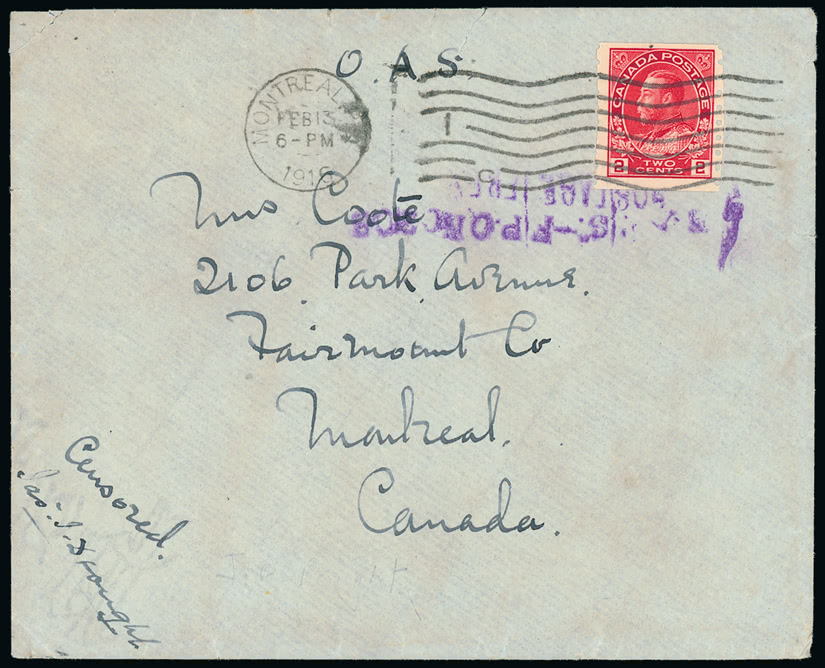 O.A.S.
MONTREAL
FEB 13
6-PM
1918
CANADA POSTAGE
2 TWO CENTS 2
Mrs Coote
2106. Park. Avenue.
Fairmount Co
Montreal.
Canada.
Censored.
Jas.